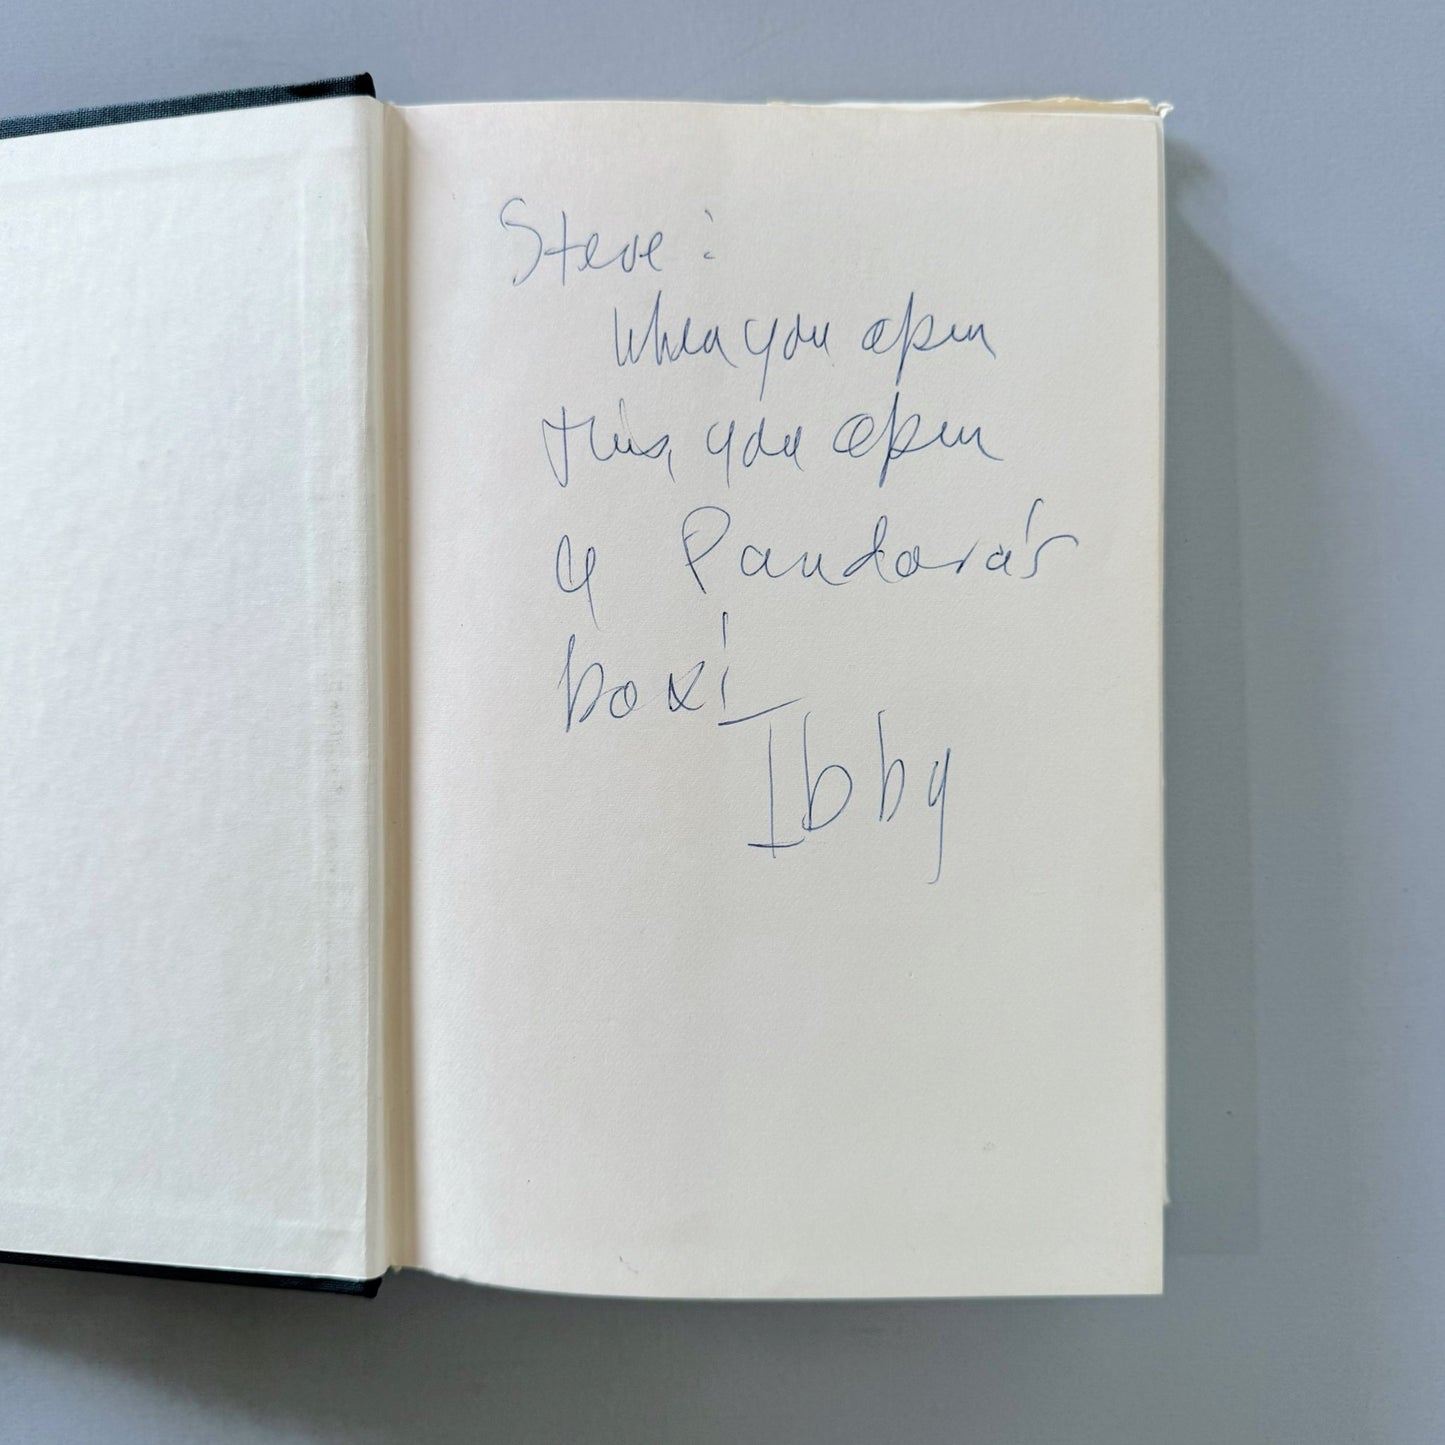 Steve:
When you open
this, you open
a Pandora's
box!
Ibby